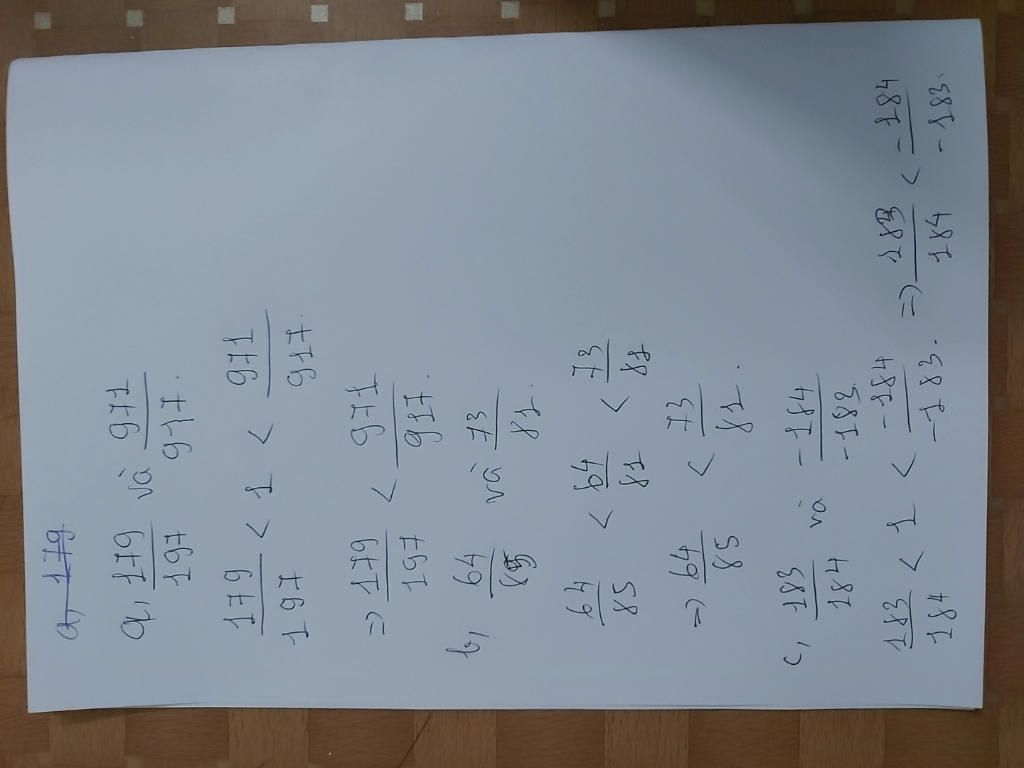 a, 179
a, 179/197 và 971/917.
179/197 < 1 < 971/917.
=> 179/197 < 971/917.
b, 64/85 và 73/81.
64/85 < 64/81 < 73/81
=> 64/85 < 73/81.
c, 183/184 và -184/-183.
183/184 < 1 < -184/-183. => 183/184 < -184/-183.